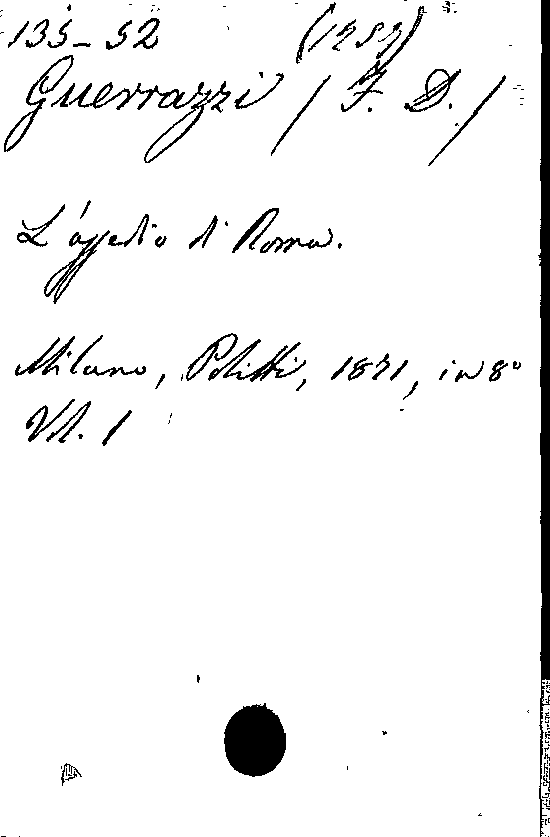 135-52 (1252)
Guerrazzi (F. D.)
L'assedio di Roma.
Milano, Politti, 1871, in 8°
Vol. 1